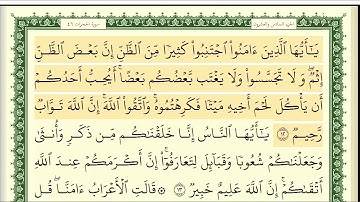 سورة الحجرات ٤٩
الجزء السادس والعشرون
يَـٰٓأَيُّهَا ٱلَّذِينَ ءَامَنُوا۟ ٱجْتَنِبُوا۟ كَثِيرًا مِّنَ ٱلظَّنِّ إِنَّ بَعْضَ ٱلظَّنِّ
إِثْمٌ ۖ وَلَا تَجَسَّسُوا۟ وَلَا يَغْتَب بَّعْضُكُم بَعْضًا ۚ أَيُحِبُّ أَحَدُكُمْ
أَن يَأْكُلَ لَحْمَ أَخِيهِ مَيْتًا فَكَرِهْتُمُوهُ ۚ وَٱتَّقُوا۟ ٱللَّهَ ۚ إِنَّ ٱللَّهَ تَوَّابٌ
رَّحِيمٌ ١٢ يَـٰٓأَيُّهَا ٱلنَّاسُ إِنَّا خَلَقْنَـٰكُم مِّن ذَكَرٍ وَأُنثَىٰ
وَجَعَلْنَـٰكُمْ شُعُوبًا وَقَبَآئِلَ لِتَعَارَفُوٓا۟ ۚ إِنَّ أَكْرَمَكُمْ عِندَ ٱللَّهِ
أَتْقَىٰكُمْ ۚ إِنَّ ٱللَّهَ عَلِيمٌ خَبِيرٌ ١٣ قَالَتِ ٱلْأَعْرَابُ ءَامَنَّا ۖ قُل